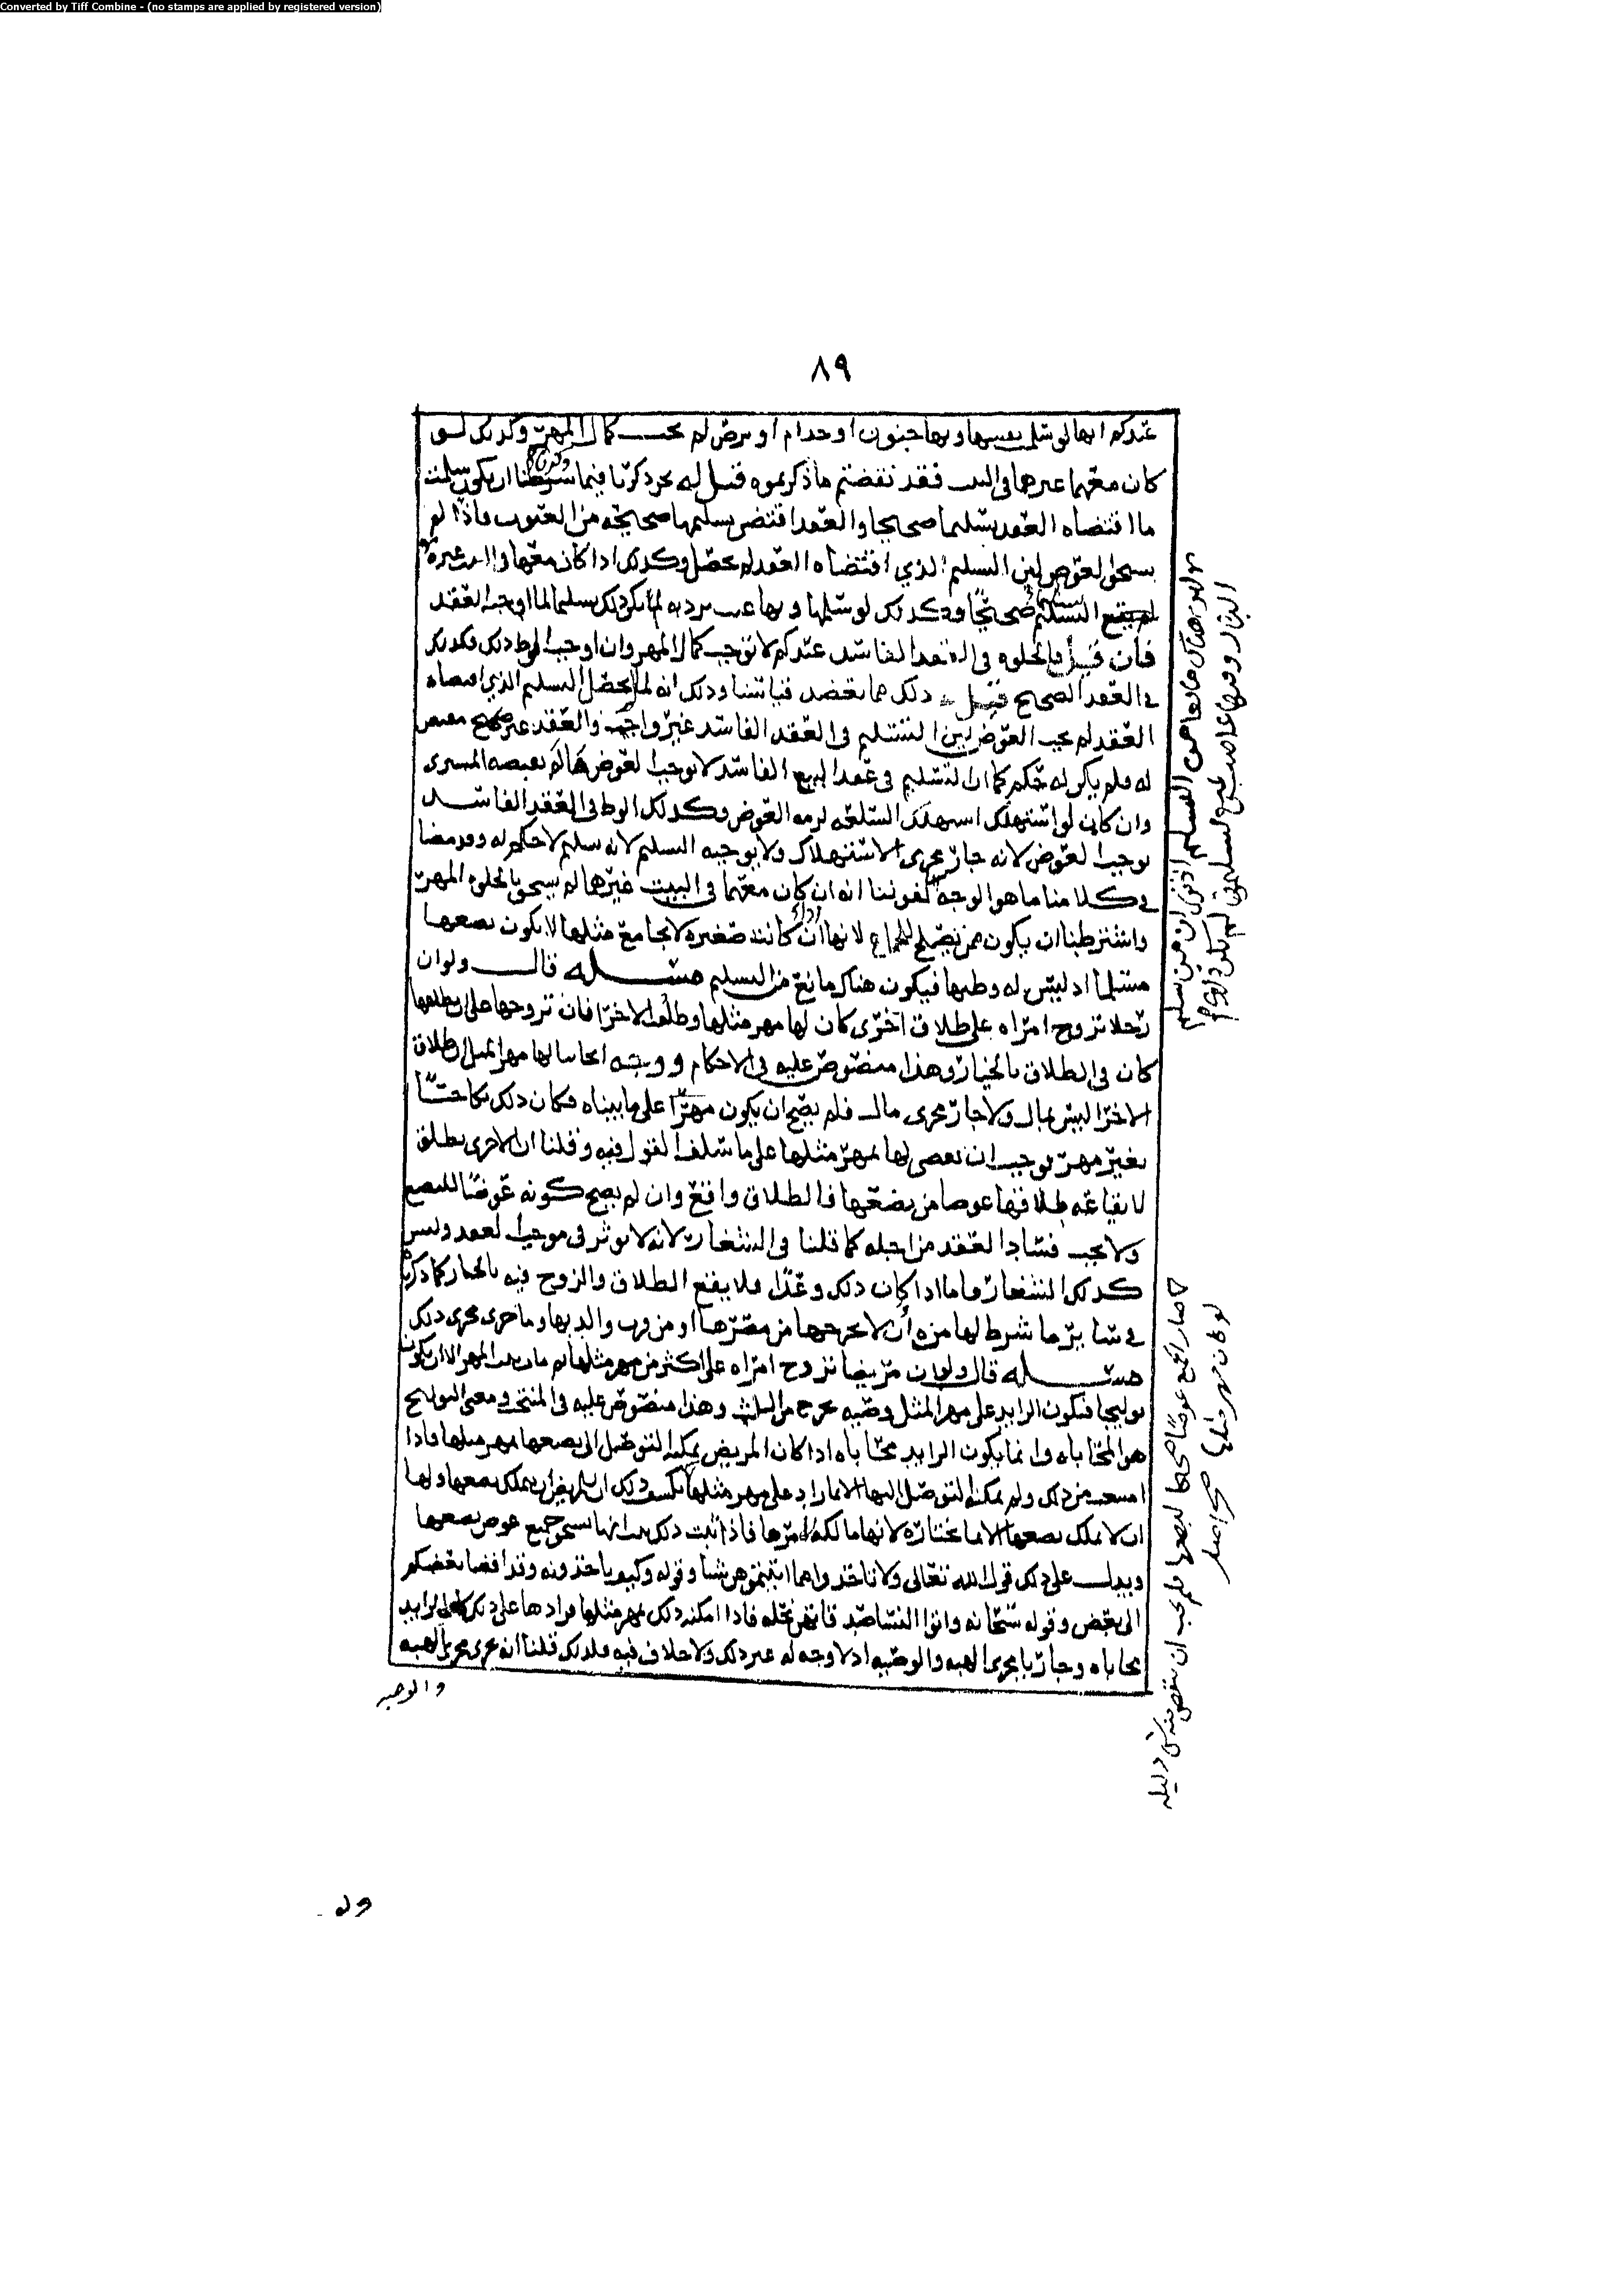 Converted by Tiff Combine - (no stamps are applied by registered version)
٨٩
عندكم انها لو سلمت نفسها وبها جنون او جذام او برص لم يجب كمال المهر وكذلك لو
كان معهما غيرهما في البيت فقد نقضتم ما ذكرتموه قيل له نحن ذكرنا فيما شرطنا ان يكون سلمت
ما اقتضاه العقد تسليما صحيحا والعقد اقتضى تسليمها صحيحة من العيوب فاذا لم
يستحق العوض لان التسليم الذي اقتضاه العقد لم يحصل وكذلك اذا كان معها في البيت غيره
لم يقع التسليم صحيحا وكذلك لو سلمها وبها عيب ترد به لم يكن ذلك تسليما لما اوجبه العقد
فان قيل فالخلوة في العقد الفاسد عندكم لا توجب كمال المهر وان اوجب الوطء ذلك فكذلك
في العقد الصحيح قيل له ذلك مما يعضد قياسنا وذلك انه لم يحصل التسليم الذي اقتضاه
العقد لم يجب العوض لان التسليم في العقد الفاسد غير واجب والعقد غير صحيح مقتض
له فلم يكن له حكم كما ان التسليم في عقد البيع الفاسد لا يوجب العوض ما لم يقبضه المشتري
وان كان لو استهلك استهلك السلعة لزمه العوض وكذلك الوطء في العقد الفاسد
يوجب العوض لانه جار مجرى الاستهلاك ولا يوجبه التسليم لانه تسليم لا حكم له وقد مضا
في كلامنا ما هو الوجه لقولنا انه ان كان معهما في البيت غيرهما لم يستحق بالخلوة المهر
واشترطنا ان يكون ممن يصلح للجماع لانها اذا كانت صغيرة لا يجامع مثلها لا يكون بضعها
مسلما اذ ليس له وطئها فيكون هناك مانع من التسليم مسئله قال ولو ان
رجلا تزوج امراه على طلاق اخرى كان لها مهر مثلها وطلقت الاخرا فان تزوجها على ان يطلقها
كان في الطلاق بالخيار وهذا منصوص عليه في الاحكام ووجه ايجابنا لها مهر المثل ان طلاق
الاخرا ليس بمال ولا جار مجرى مال فلم يصح ان يكون مهرا على ما بيناه فكان ذلك نكاحا
بغير مهر يوجب ان يقضى لها بمهر مثلها على ما سلف القول فيه وقلنا ان الاخرى تطلق
لايقاعه طلاقها عوضا من بضعها فالطلاق واقع وان لم يصح كونه عوضا للبضع
ولا يجب فساد العقد من اجله كما قلنا في الشغار لانه لا يوثر في موجب العقد وليس
كذلك الشغار فاما اذا كان ذلك وعدا فلا يقع الطلاق والزوج فيه بالخيار كما ذكرنا
في سائر ما شرط لها من ان لا يخرجها من مصرها او من قرب والديها وما جرى مجرى ذلك
مسئله قال ولو ان مريضا تزوج امراه على اكثر من مهر مثلها ثم مات ثبت المهر الا ان يكون
توليجا فيكون الزايد على مهر المثل وصيه يخرج من الثلث وهذا منصوص عليه في المنتخب ومعنى التوليج
هو المحاباه وانما يكون الزايد محاباه اذا كان المريض يمكنه التوصل الى بضعها بمهر مثلها فاذا
امتنعت من ذلك ولم يمكنه التوصل اليها الا بما زاد على مهر مثلها ذلك ان للمريض ان يملك بضعها ولها
ان لا يملك بضعها الا بما تختاره لانها مالكة امرها فاذا ثبت ذلك ثبت انها تستحق جميع عوض بضعها
ويدل على ذلك قول الله تعالى ولا تاخذوا مما اتيتموهن شيئا وقوله وكيف تاخذونه وقد افضا بعضكم
الى بعض وقوله سبحانه واتوا النسا صدقاتهن نحلة فاذا امكنه ذلك بمهر مثلها فزادها على ذلك كان الزايد
محاباه وجاريا مجرى الهبه والوصيه اذ لا وجه له غير ذلك ولا خلاف فيه فلذلك قلنا انه يجري مجرى الهبه
والوصيه